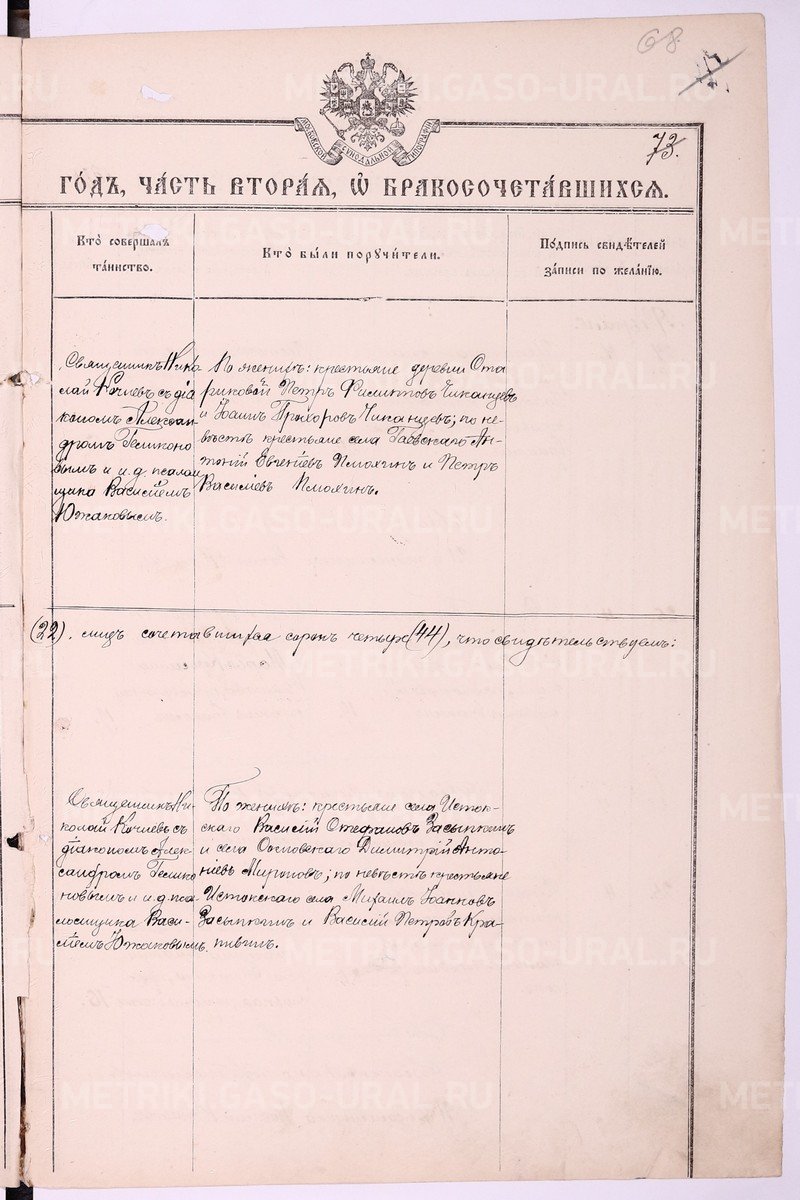 68.
73.
МОСКОВСКОЙ СѴНОДАЛЬНОЙ ТИПОГРАФІИ
ГО́ДЪ, ЧА́СТЬ ВТОРА́Ѧ, Ѽ БРАКОСОЧЕТА́ВШИХСѦ.
Кто̀ соверша́лъ
та́инство.
Кто̀ бы́ли порꙋчи́тели.
По́дпись свидѣ́телей
за́писи по жела́нїю.
Священникъ Нико
лай Кочневъ съ діа
кономъ Алексан
дромъ Геликоно
вымъ и и.д. псалом
щика Василіемъ
Южаковымъ.
По женихѣ: крестьяне деревни Ста
риковой Петръ Филиповъ Чиканцевъ
и Іоаннъ Прохоровъ Чиканцевъ; по не-
вѣстѣ крестьяне села Ан-
тоній Евгеніевъ и Петръ
Васильевъ
(22). лицъ сочетавшихся сорокъ четыре (44), что свидѣтельствуемъ:
Священникъ Ни-
колай Кочневъ съ
діакономъ Алек-
сандромъ Гелико
новымъ и и.д. пса
ломщика Васи-
ліемъ Южаковымъ.
По женихѣ: крестьяне села Исток-
скаго Василій Стефановъ Засыпкинъ
и села Димитрій Анто-
ніевъ Мироновъ; по невѣстѣ крестьяне
Истокскаго села Михаилъ Іоанновъ
Засыпкинъ и Василій Петровъ Кра-
пивинъ.
METRIKI.GASO-URAL.RU